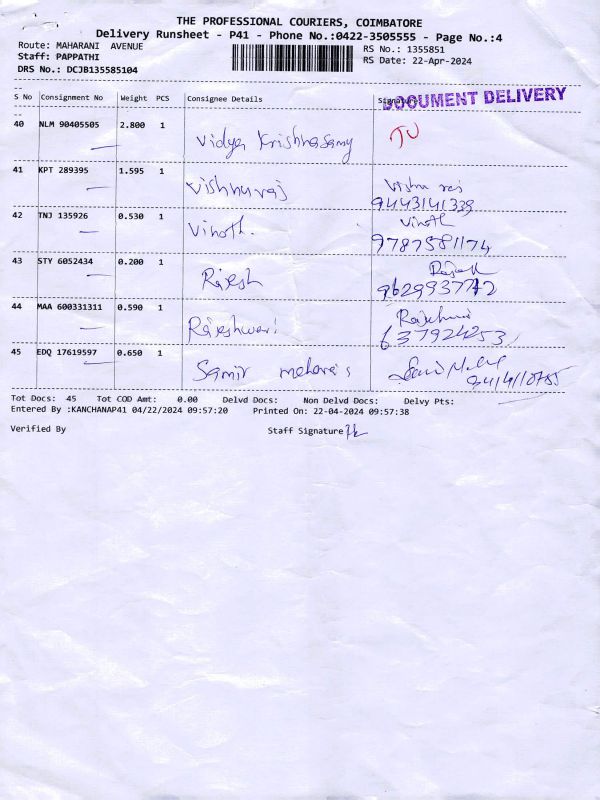 THE PROFESSIONAL COURIERS, COIMBATORE
Delivery Runsheet - P41 - Phone No.:0422-3505555 - Page No.:4
Route: MAHARANI AVENUE RS No.: 1355851
Staff: PAPPATHI RS Date: 22-Apr-2024
DRS No.: DCJB135585104
DOCUMENT DELIVERY
S No Consignment No Weight PCS Consignee Details Signature
40 NLM 90405505 2.800 1
Vidya Krishnasamy
41 KPT 289395 1.595 1
Vishnuraj Vishnu raj
9443141339
42 TNJ 135926 0.530 1 Vinoth
Vinoth.
9787581174
43 STY 6052434 0.200 1 Rajesh
Rajesh
44 MAA 600331311 0.590 1
Rajeshwari
637924253
45 EDQ 17619597 0.650 1
Samir
Tot Docs: 45 Tot COD Amt: 0.00 Delvd Docs: Non Delvd Docs: Delvy Pts:
Entered By :KANCHANAP41 04/22/2024 09:57:20 Printed On: 22-04-2024 09:57:38
Verified By Staff Signature